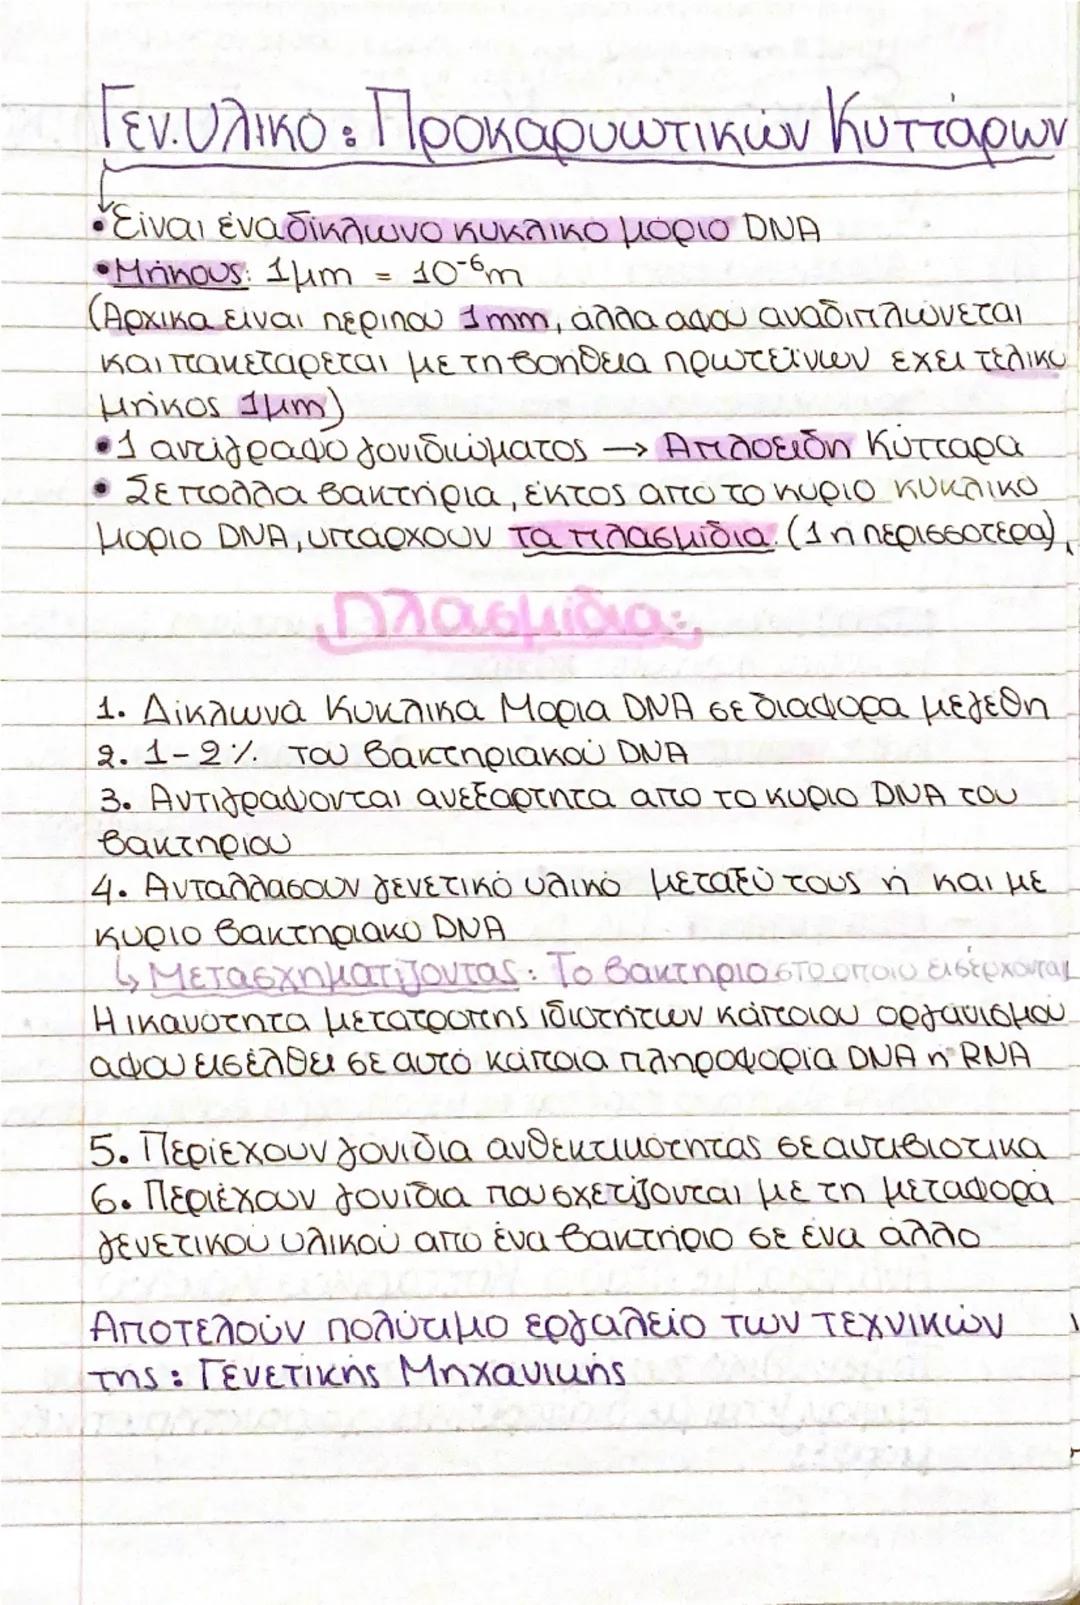 Γεν. Υλικό: Προκαρυωτικών Κυττάρων
• Είναι ένα δίκλωνο κυκλικό μόριο DNA
• Μήκους: 1μm = 10⁻⁶m
(Αρχικα είναι περιπου 1mm, άλλα αφου αναδιπλώνεται
και πακετάρεται με τη βοήθεια πρωτεϊνων εχει τελικο
μήκος 1μm)
• 1 αντίγραφο γονιδιώματος → Απλοειδη Κύτταρα
• Σε πολλα βακτήρια, έκτος απο το κυριο κυκλικό
μοριο DNA, υπαρχουν τα πλασμιδια. (1 η περισσοτερα)
Πλασμίδια:
1. Δίκλωνα Κυκλικα Μορια DNA σε διαφορα μεγεθη
2. 1-2% του βακτηριακού DNA
3. Αντιγραφονται ανεξαρτητα απο το κυριο DNA του
βακτηριου
4. Ανταλλασουν γενετικό υλικό μεταξύ τους ή και με
κυριο βακτηριακο DNA
↳ Μετασχηματιζοντας: Το βακτηριο στο οποιο εισέρχονται
Η ικανοτητα μετατροπης ιδιοτήτων κάποιου οργανισμου
αφου εισέλθει σε αυτό κάποια πληροφορία DNA η RNA
5. Περιέχουν γονιδια ανθεκτικοτητας σε αντιβιοτικα
6. Περιέχουν γονίδια που σχετίζονται με τη μεταφορά
γενετικού υλικού απο ένα βακτήριο σε ένα άλλο
Αποτελούν πολύτιμο εργαλείο των τεχνικών
της: Γενετικής Μηχανικής